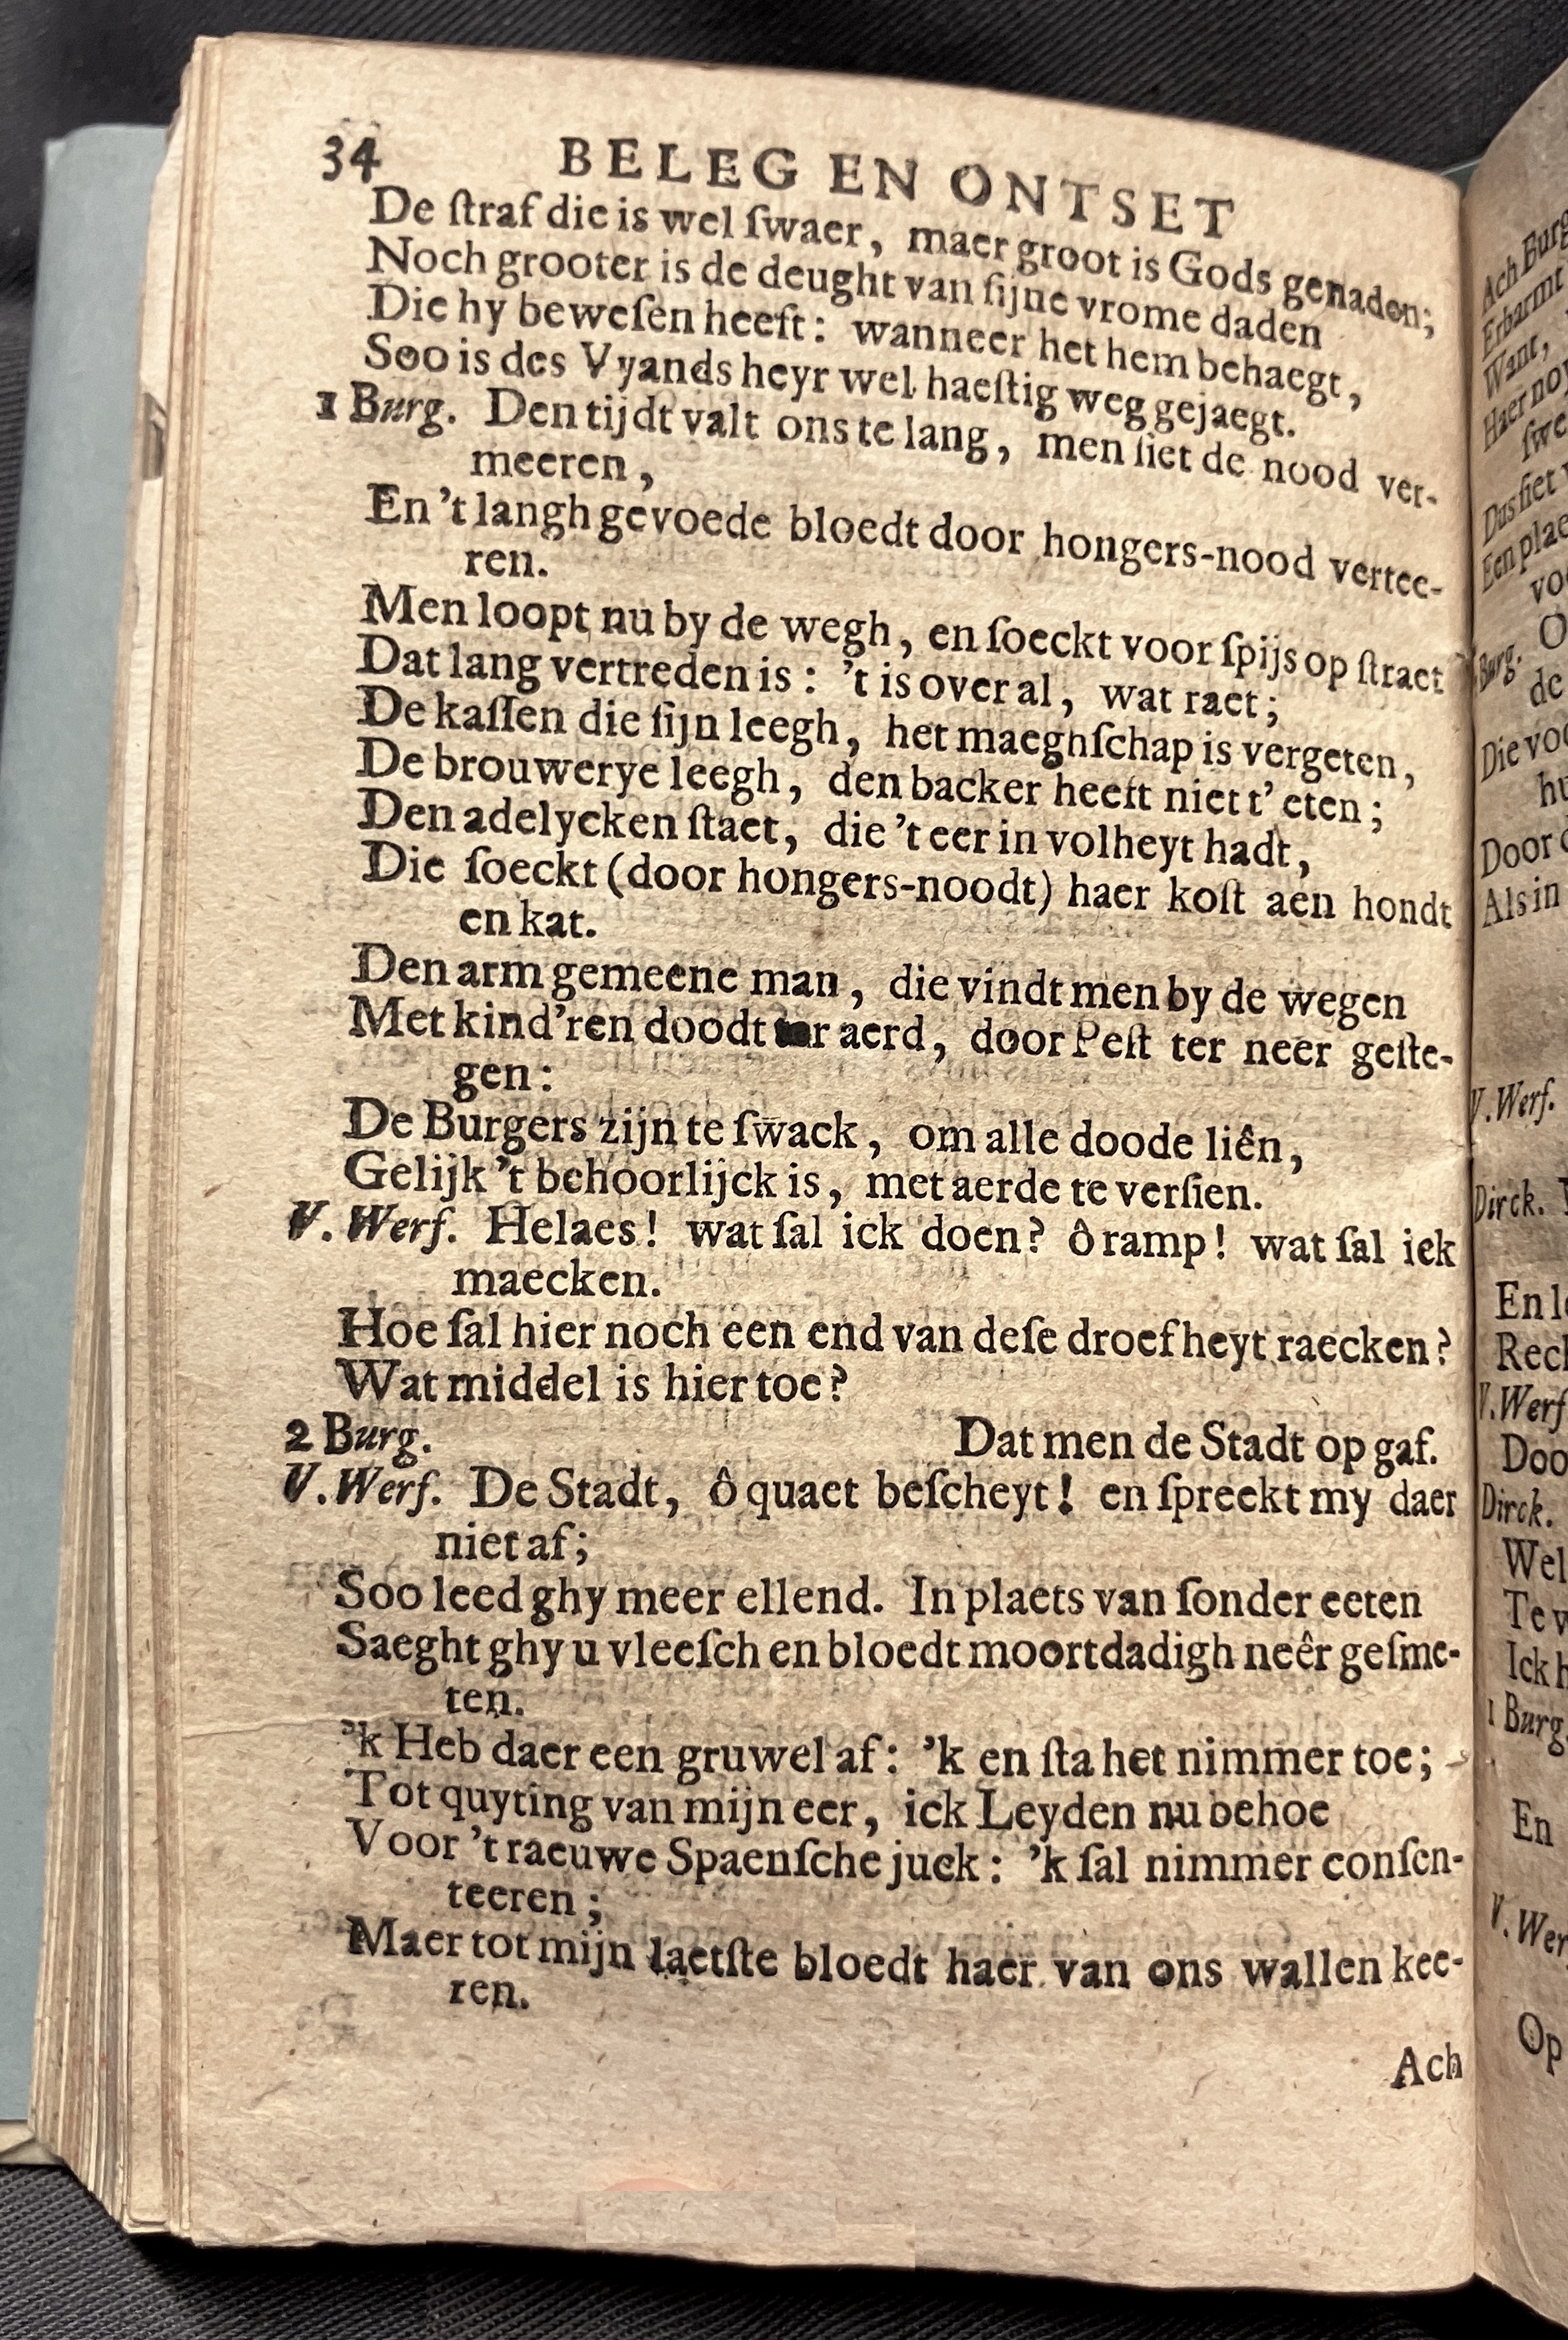 34 BELEG EN ONTSET
De ſtraf die is wel ſwaer, maer groot is Gods genaden;
Noch grooter is de deught van ſijne vrome daden
Die hy beweſen heeft: wanneer het hem behaegt,
Soo is des Vyands heyr wel haeſtig weg gejaegt.
1 Burg. Den tijdt valt ons te lang, men ſiet de nood ver-
meeren,
En 't langh gevoede bloedt door hongers-nood vertee-
ren.
Men loopt nu by de wegh, en ſoeckt voor ſpijs op ſtraet
Dat lang vertreden is: 't is over al, wat raet;
De kaſſen die ſijn leegh, het maeghſchap is vergeten,
De brouwerye leegh, den backer heeft niet t' eten;
Den adelycken ſtaet, die 't eer in volheyt hadt,
Die ſoeckt (door hongers-noodt) haer koſt aen hondt
en kat.
Den arm gemeene man, die vindt men by de wegen
Met kind'ren doodt ter aerd, door Peſt ter neer geſte-
gen:
De Burgers zijn te ſwack, om alle doode liên,
Gelijk 't behoorlijck is, met aerde te verſien.
V. Werf. Helaes! wat ſal ick doen? ô ramp! wat ſal iek
maecken.
Hoe ſal hier noch een end van deſe droefheyt raecken?
Wat middel is hier toe?
2 Burg. Dat men de Stadt op gaf.
V. Werf. De Stadt, ô quaet beſcheyt! en ſpreekt my daer
niet af;
Soo leed ghy meer ellend. In plaets van ſonder eeten
Saeght ghy u vleeſch en bloedt moortdadigh neêr geſme-
ten.
'k Heb daer een gruwel af: 'k en ſta het nimmer toe;
Tot quyting van mijn eer, ick Leyden nu behoe
Voor 't raeuwe Spaenſche juck: 'k ſal nimmer conſen-
teeren;
Maer tot mijn laetſte bloedt haer van ons wallen kee-
ren.
Ach
Ach Burg
Erbarmt
Want,
Haer no
ſwe
Dus ſiet
Een plae
vo
Burg. O
de
Die voo
hu
Door
Als in
V. Werf.
Dirck.
En l
Rech
V. Werf
Doo
Dirck.
Wel
Te v
Ick h
1 Burg
En
V. Wer
Op